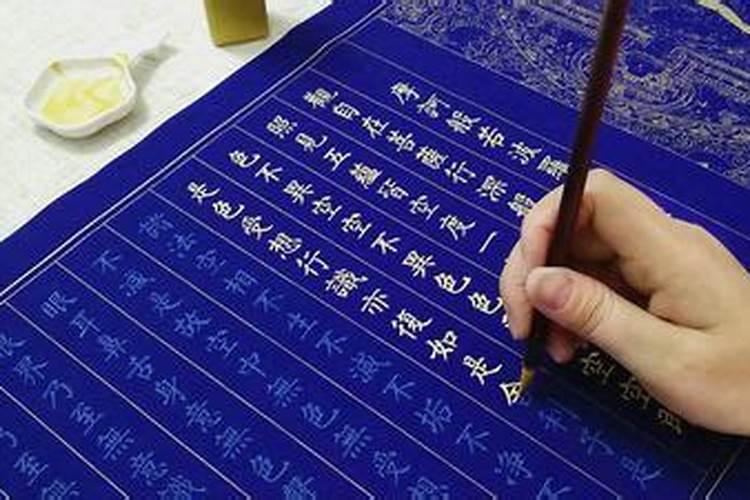 摩訶般若波羅
觀自在菩薩行深般
照見五蘊皆空度一
色不異空空不異色色空空即
是色受想行識亦復如是舍利子是
諸法空相不生不滅不垢不淨
不減是故空中無色無受想
眼耳鼻舌身意無色聲
界乃至無意識
乃至無